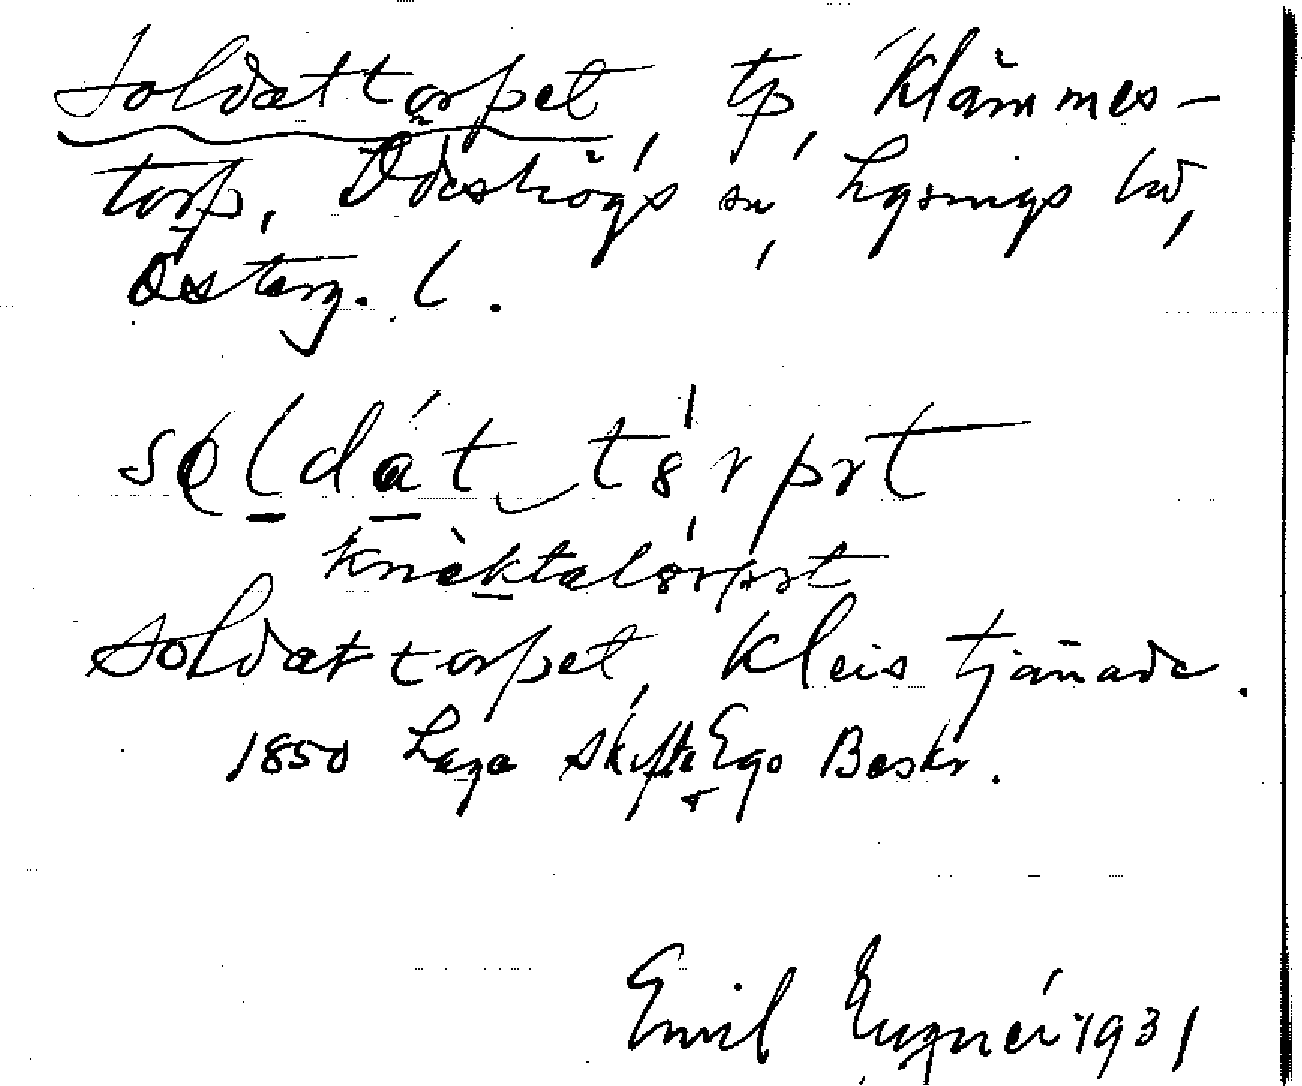 Soldattorpet, tp, Klämmes-
torp, Ödeshögs sn, Lysings hd,
Österg. l.
knèktatórpət
Soldattorpet, Kleis tjänade.
1850 Laga skifte Ego Beskr.
Emil Eugnér 1931